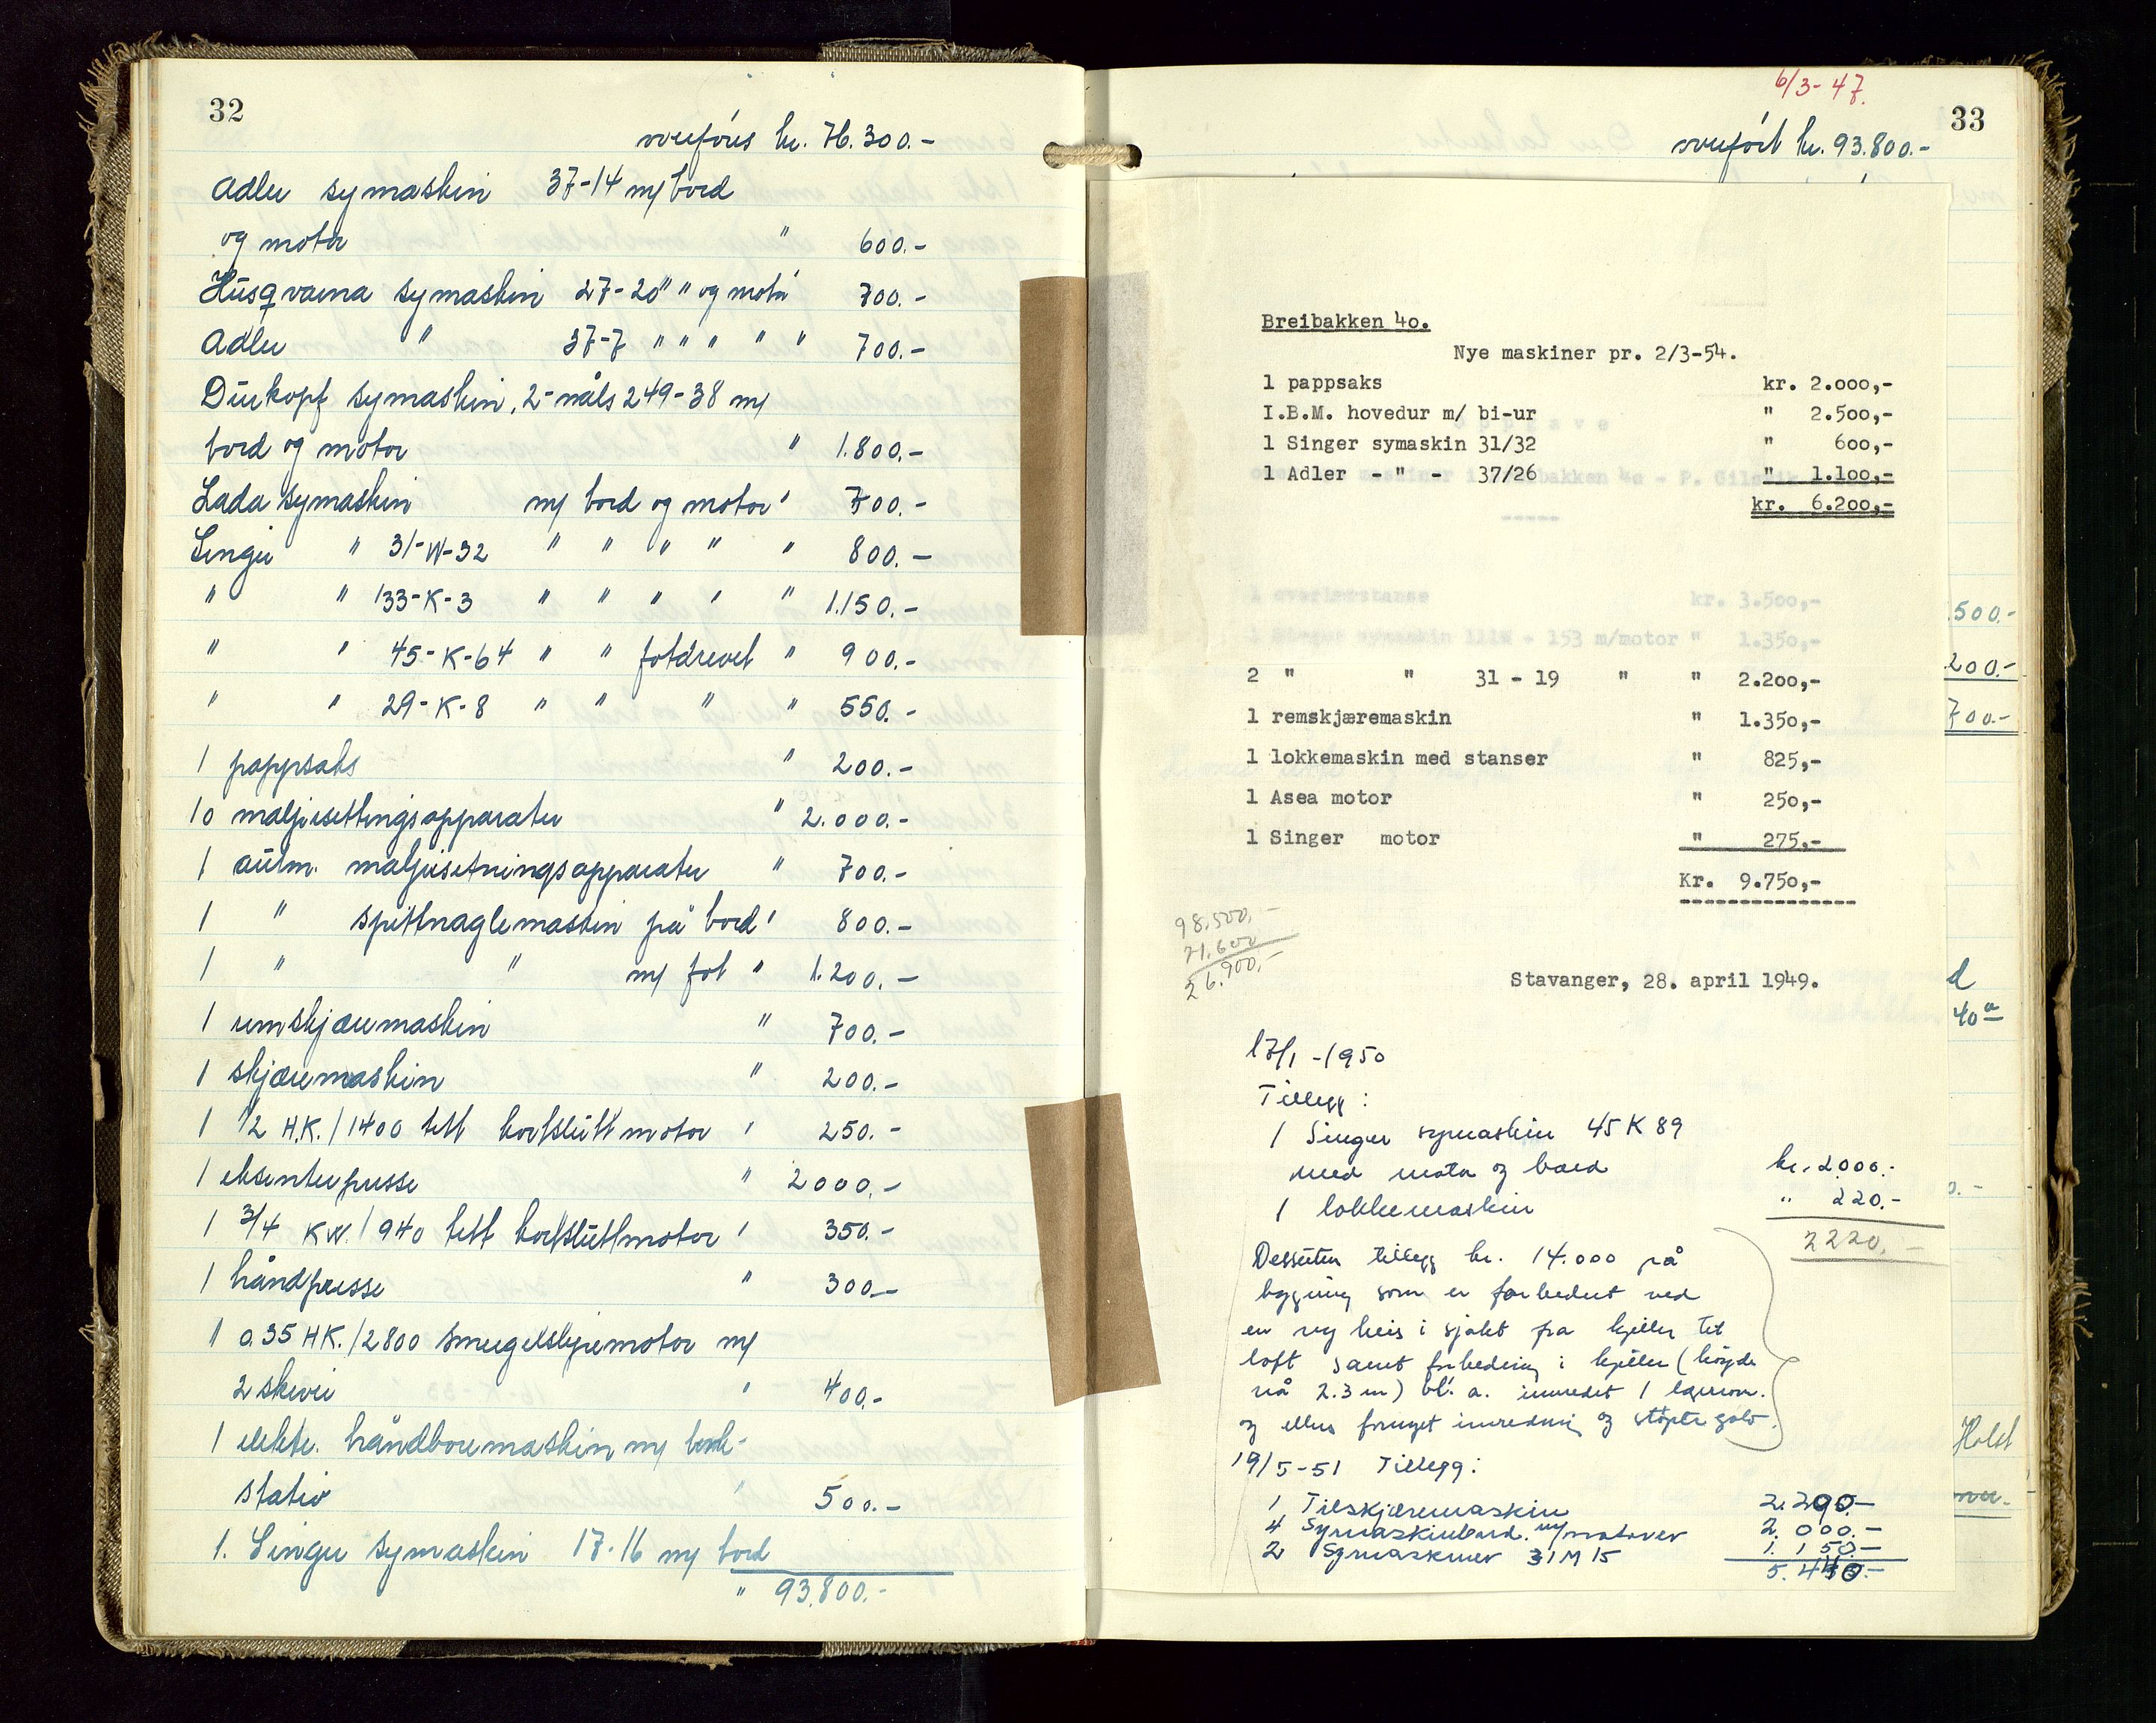 32
overføres kr. 76.300.-
Adler symaskin 37-14 m/ bord
og motor " 600.-
Husqvarna symaskin 27-20 " " og motor 700.-
Adler " 37-7 " " " " " 700.-
Dürkopf symaskin, 2-nåls 249-38 m/
bord og motor " 1.800.-
Lada symaskin m/ bord og motor " 700.-
Singer " 31-W-32 " " " " " 800.-
" " 133-K-3 " " " " " 1.150.-
" " 45-K-64 " " fotdrevet " 900.-
" " 29-K-8 " " " " 550.-
1 pappsaks " 200.-
10 maljesettingsapparater " 2.000.-
1 autm. maljesetningsapparater " 700.-
1 " splittnaglemaskin på bord " 800.-
1 " " m/ fot " 1.200.-
1 remskjæremaskin " 700.-
1 skjæremaskin " 200.-
1 1/2 H.K./1400 tett kortsluttmotor " 250.-
1 eksenterpresse " 2000.-
1 3/4 KW./940 tett kortsluttmotor " 350.-
1 håndpresse " 300.-
1 0.35 HK./2800 smergelslipemotor m/
2 skiver " 400.-
1 elektr. håndboremaskin m/ benk-
stativ " 500.-
1. Singer symaskin 17-16 m/ bord
" 93.800.-
6/3-47.
33
overført kr. 93.800.-
Breibakken 4o.
Nye maskiner pr. 2/3-54.
1 pappsaks kr. 2.000,-
I.B.M. hovedur m/ bi-ur " 2.500,-
1 Singer symaskin 31/32 " 600,-
1 Adler - " - 37/26 " 1.100,-
kr. 6.200,-
1 overlærstanse kr. 3.500,-
1 Singer symaskin 111w - 153 m/motor " 1.350,-
2 " " 31 - 19 " " 2.200,-
1 remskjæremaskin " 1.350,-
1 lokkemaskin med stanser " 825,-
1 Asea motor " 250,-
1 Singer motor " 275,-
Kr. 9.750,-
98.500,-
71.600
26.900,-
Stavanger, 28. april 1949.
17/1 -1950
Tillegg:
1 Singer symaskin 45 K 89
med motor og bord kr. 2000.-
1 lokkemaskin " 220.-
2220,-
Dessuten tillegg kr. 14.000 på
bygning som er forbedret ved
en ny heis i sjakt fra kjeller til
loft samt forbedring i kjeller (høyde
nå 2.3 m) bl. a. innredet 1 lagerrom.
og ellers fornyet innredning og støpte golv.
19/5-51 Tillegg:
1 Tilskjæremaskin 2.290.-
4 Symaskinbord m/motorer 2.000.-
2 Symaskiner 31 M 15 1.150.-
5.440.-
500.-
200.-
700.-
d
40a
Holst